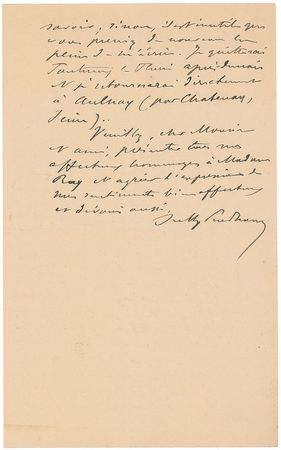 savoir, sinon, il est inutile que
vous preniez de nouveau la
peine de m'écrire. Je quitterai
après demain
et je retournerai directement
à Aulnay (par Chatenay,
Seine)..
Veuillez, cher Monsieur
et ami, présenter tous mes
affectueux hommages à Madame
Ray et agréer l'expression de
mes sentiments bien affectueux
et dévoués aussi.
Sully Prudhomme